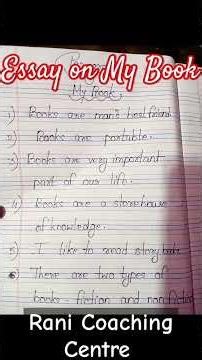 Essay on My Book
My Book
1) Books are man's best friend.
2) Books are portable.
3) Books are very important
part of our life.
4) Books are a storehouse
of knowledge.
5) I like to read story books
6) There are two types of
books - fiction and non fiction
Rani Coaching
Centre